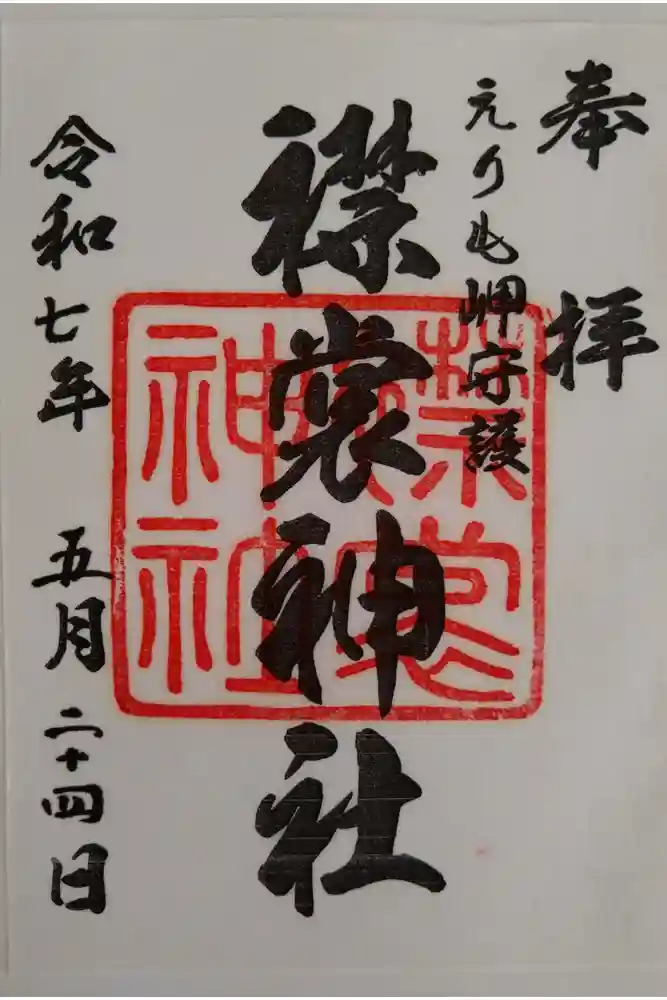 奉拝
えりも岬守護
襟裳神社
襟裳神社
令和七年 五月二十四日